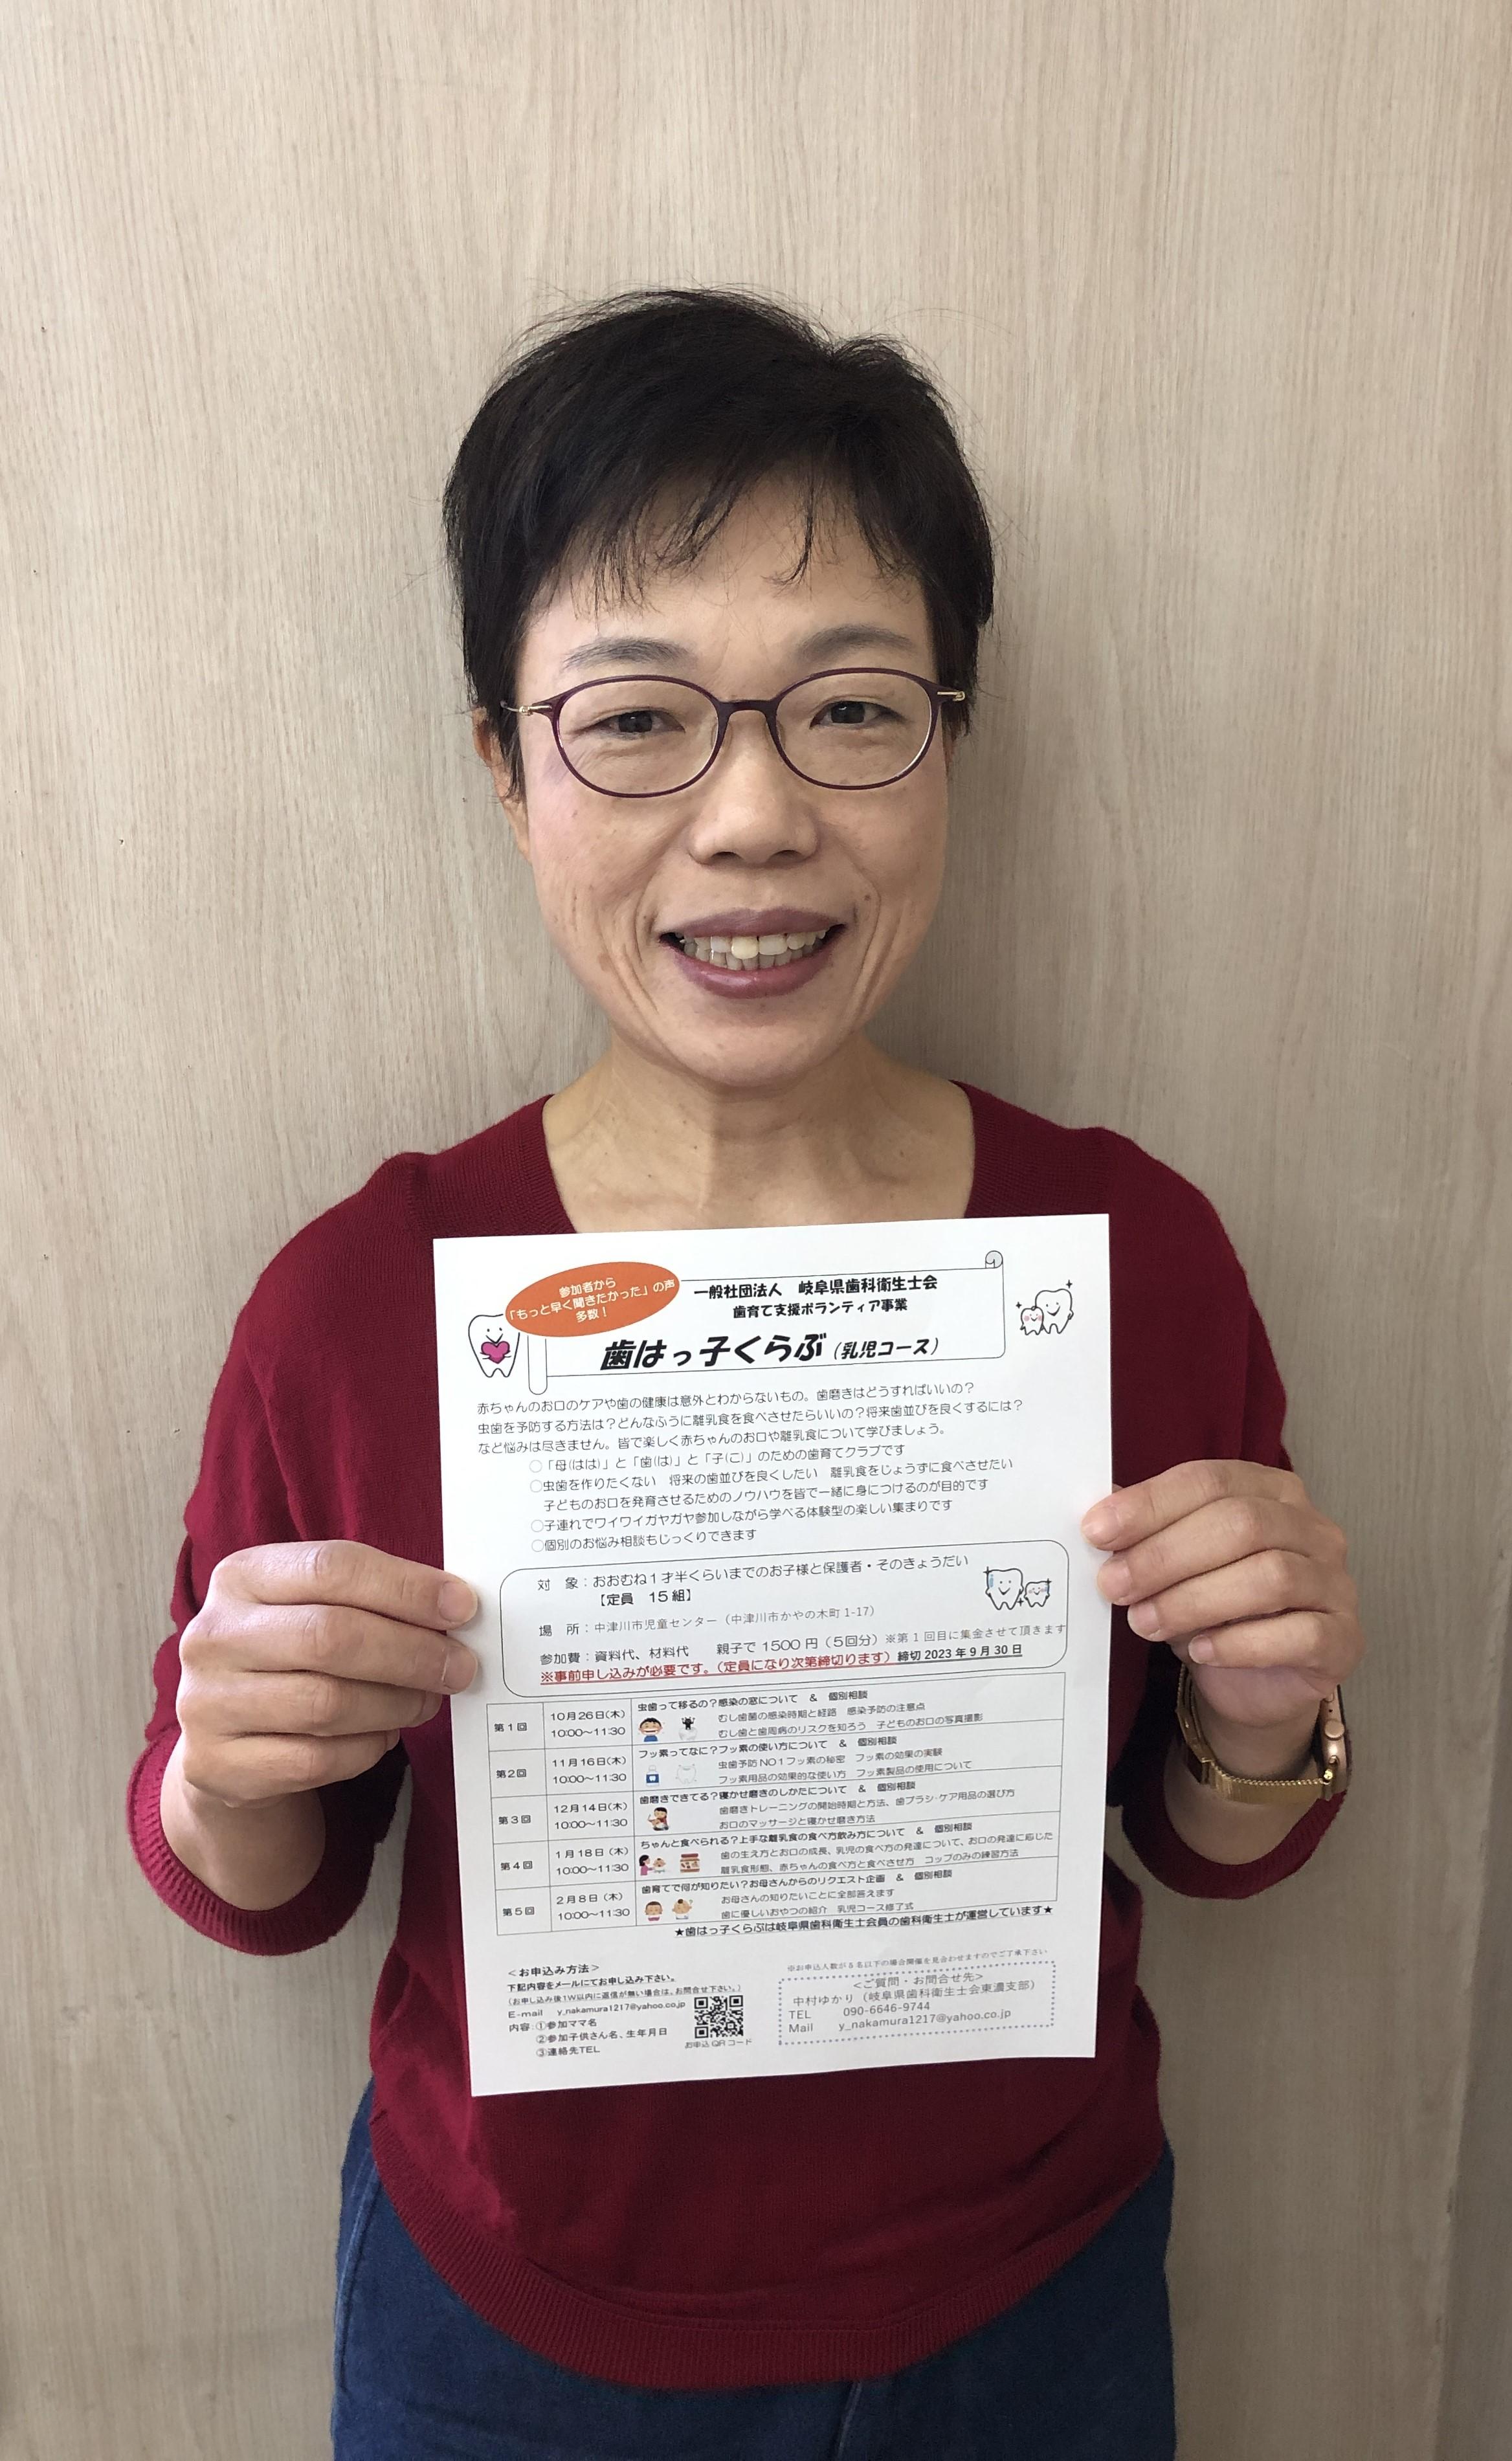 参加者から
「もっと早く聞きたかった」の声
多数！
一般社団法人　岐阜県歯科衛生士会
歯育て支援ボランティア事業
歯はっ子くらぶ（乳児コース）
赤ちゃんのお口のケアや歯の健康は意外とわからないもの。歯磨きはどうすればいいの？
虫歯を予防する方法は？どんなふうに離乳食を食べさせたらいいの？将来歯並びを良くするには？
など悩みは尽きません。皆で楽しく赤ちゃんのお口や離乳食について学びましょう。
○「母(はは)」と「歯(は)」と「子(こ)」のための歯育てクラブです
○虫歯を作りたくない　将来の歯並びを良くしたい　離乳食をじょうずに食べさせたい
子どものお口を発育させるためのノウハウを皆で一緒に身につけるのが目的です
○子連れでワイワイガヤガヤ参加しながら学べる体験型の楽しい集まりです
○個別のお悩み相談もじっくりできます
対　象：おおむね１才半くらいまでのお子様と保護者・そのきょうだい
【定員　15 組】
場　所：中津川市児童センター（中津川市かやの木町 1-17）
参加費：資料代、材料代　　親子で 1500 円（５回分）※第１回目に集金させて頂きます
※事前申し込みが必要です。（定員になり次第締切ります）締切 2023 年 9 月 30 日
第１回　10月26日(木)　10:00～11:30
虫歯って移るの？感染の窓について　＆　個別相談
むし歯菌の感染時期と経路　感染予防の注意点
むし歯と歯周病のリスクを知ろう　子どものお口の写真撮影
第２回　11月16日(木)　10:00～11:30
フッ素ってなに？フッ素の使い方について　＆　個別相談
虫歯予防 NO１フッ素の秘密　フッ素の効果の実験
フッ素用品の効果的な使い方　フッ素製品の使用について
第３回　12月14日(木)　10:00～11:30
歯磨きできてる？寝かせ磨きのしかたについて　＆　個別相談
歯磨きトレーニングの開始時期と方法、歯ブラシ･ケア用品の選び方
お口のマッサージと寝かせ磨き方法
第４回　１月18日（木）　10:00～11:30
ちゃんと食べられる？上手な離乳食の食べ方飲み方について　＆　個別相談
歯の生え方とお口の成長、乳児の食べ方の発達について、お口の発達に応じた
離乳食形態、赤ちゃんの食べ方と食べさせ方　コップのみの練習方法
第５回　２月８日（木）　10:00～11:30
歯育てで何が知りたい？お母さんからのリクエスト企画　＆　個別相談
お母さんの知りたいことに全部答えます
歯に優しいおやつの紹介　乳児コース修了式
★歯はっ子くらぶは岐阜県歯科衛生士会員の歯科衛生士が運営しています★
※お申込人数が５名以下の場合開催を見合わせますのでご了承下さい
＜お申込み方法＞
下記内容をメールにてお申し込み下さい。
（お申し込み後1W以内に返信が無い場合は、お問合せ下さい。）
E-mail　y_nakamura1217@yahoo.co.jp
内容：①参加ママ名
②参加子供さん名、生年月日
③連絡先TEL
お申込 QR コード
＜ご質問・お問合せ先＞
中村ゆかり（岐阜県歯科衛生士会東濃支部）
TEL　090-6646-9744
Mail　y_nakamura1217@yahoo.co.jp